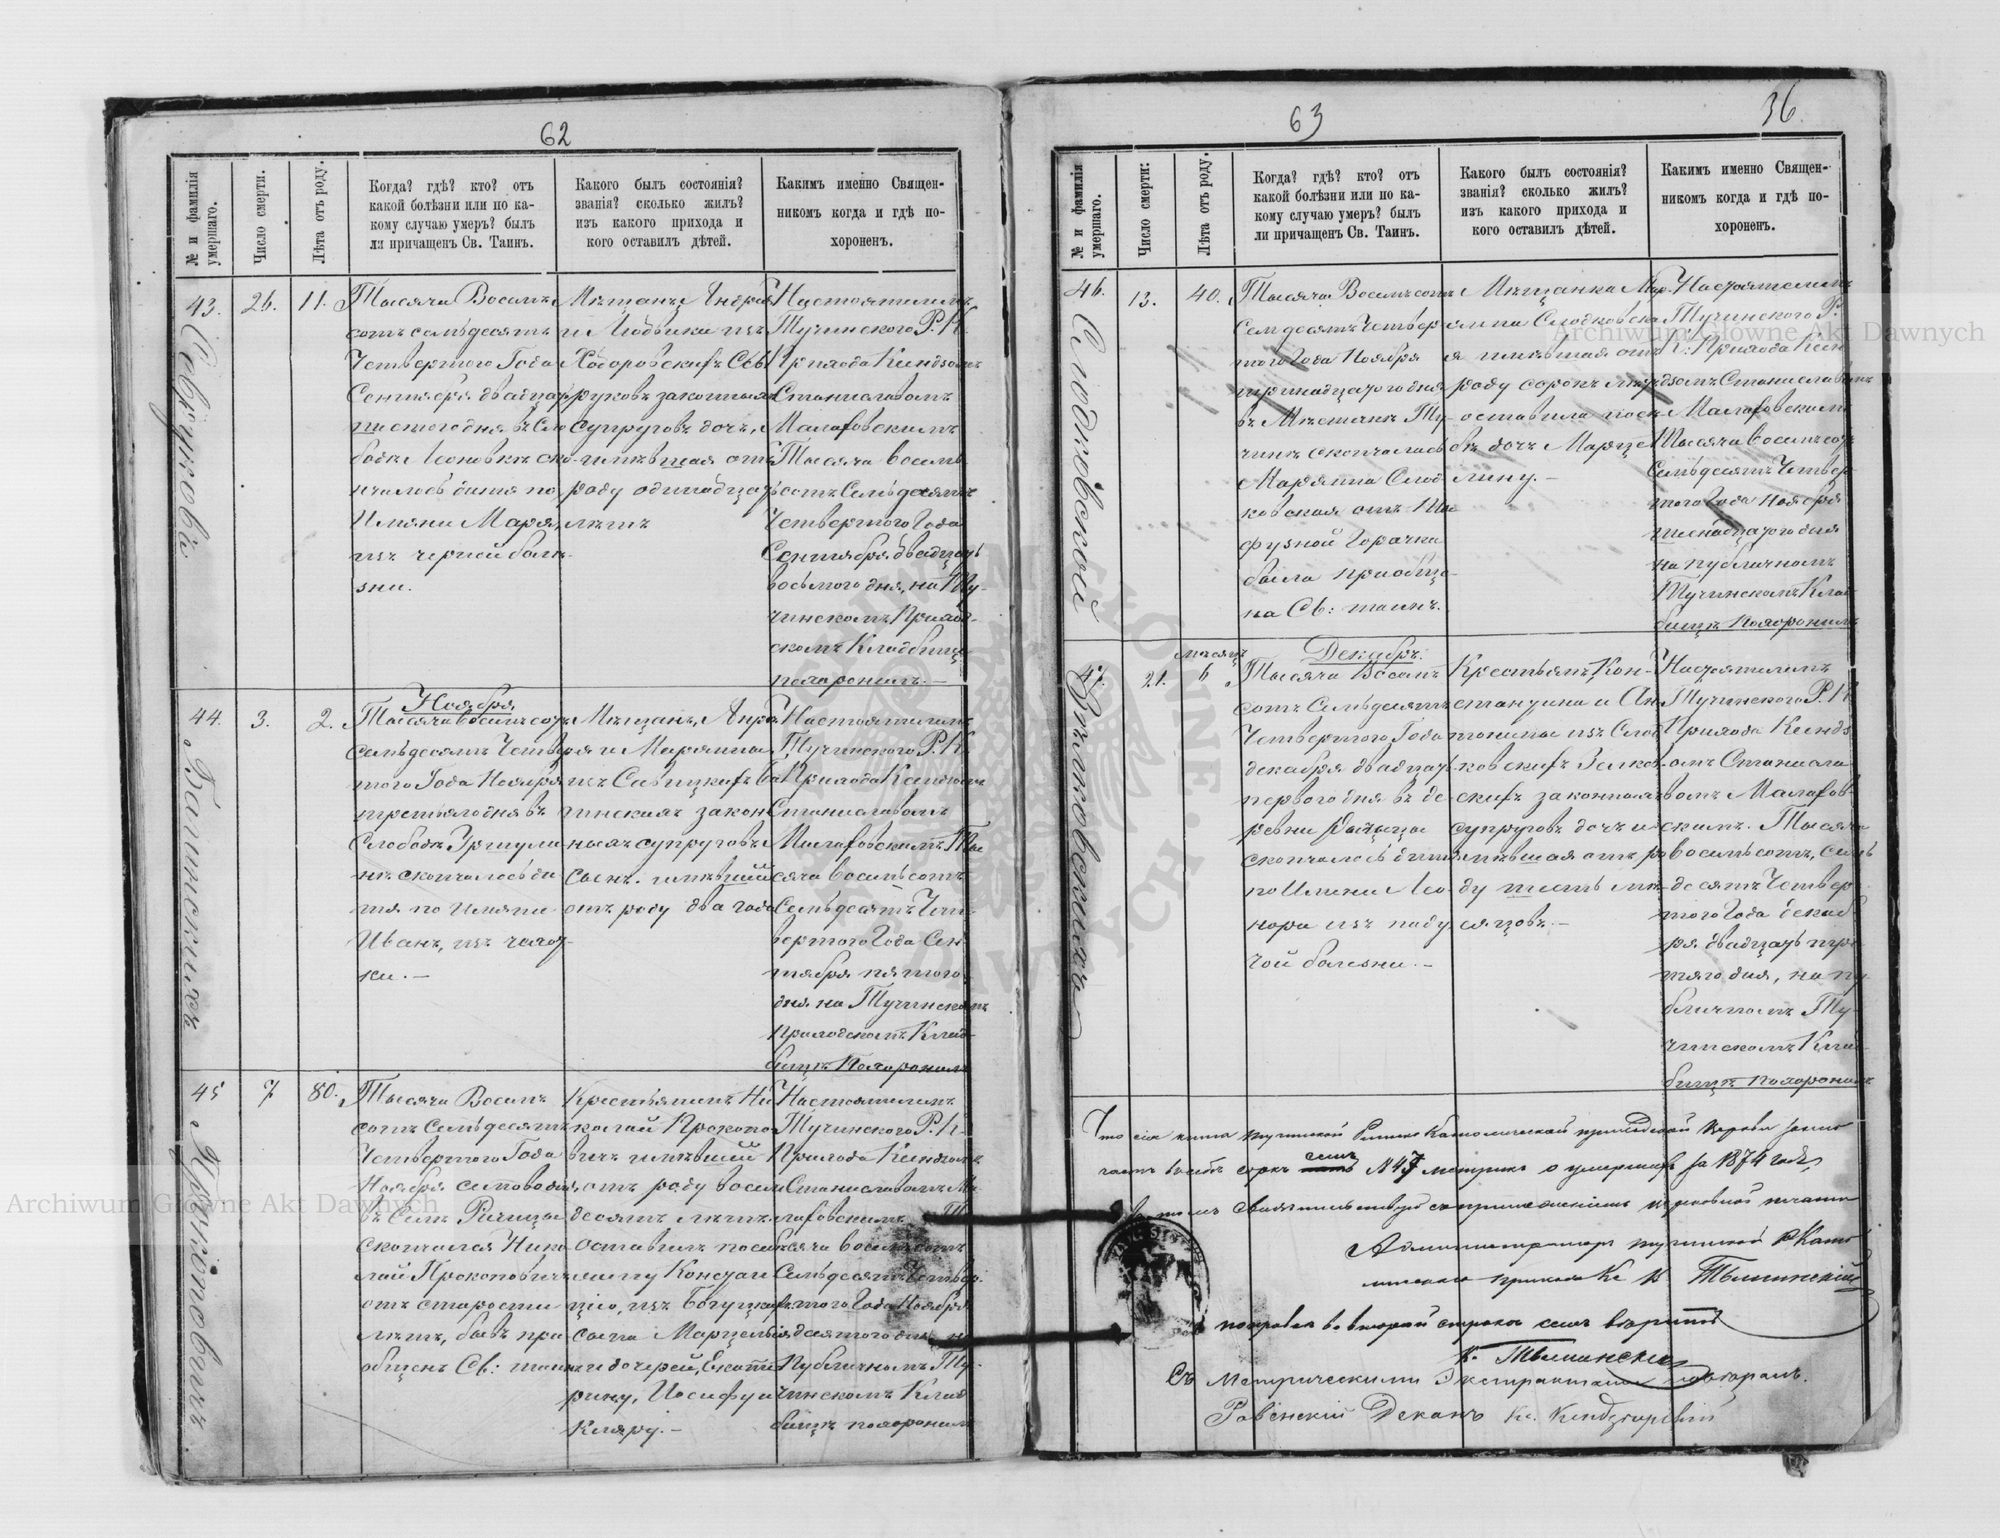 62
№ и фамилія умершаго.
Число смерти.
Лѣта отъ роду.
Когда? гдѣ? кто? отъ
какой болѣзни или по ка-
кому случаю умеръ? былъ
ли причащенъ Св. Таинъ.
Какого былъ состоянія?
званія? сколько жилъ?
изъ какого прихода и
кого оставилъ дѣтей.
Какимъ именно Священ-
никомъ когда и гдѣ по-
хороненъ.
43.
26.
11.
Тысяча Восемь
сотъ семьдесятъ
Четвертого Года
Сентября двадцать
шестого дня въ Сло
бодѣ Леоновкѣ ско-
нчалось дитя по
Имени Марья,
изъ черной болѣ-
зни.
Мѣщанъ Андрея
и Людвики изъ
Ходоровскихъ Сев
руковъ законныхъ
Супруговъ дочь,
имѣвшая отъ
роду одинадцать
лѣтъ
Настоятелемъ
Тучинского Р. К.
Прихода Ксендзомъ
Станиславомъ
Малаховскимъ
Тысяча восемь
сотъ Семьдесятъ
Четвертого Года
Сентября двадцать
восьмого дня, на Ту-
чинскомъ Приход-
скомъ Кладбищѣ
похороненъ.—
44.
3.
2.
Ноября
Тысяча восемьсотъ
семьдесятъ Четвер
того Года Ноября
третьяго дня въ
Слободѣ
нѣ скончалось ди
тя по Имени
Иванъ, изъ чахот-
ки.—
Мѣщанъ, Андре
я и Марянны
изъ Савицкихъ Ба
гинскихъ закон
ныхъ супруговъ
Сынъ, имѣвшій
отъ роду два года
Настоятелемъ
Тучинского Р. К.
Прихода Ксендзомъ
Станиславомъ
Малаховскимъ Ты
сяча восемьсотъ
Семьдесятъ Чет
вертого Года Сен
тября пятого
дня на Тучинскомъ
Приходскомъ Клад-
бищѣ Похороненъ
45
7
80.
Прокоповичъ
Тысяча Восемь
сотъ Семьдесятъ
Четвертого Года
Ноября семого дня,
въ Селѣ Речица
скончался Нико
лай Прокоповичъ
отъ старости
лѣтъ, бывъ при
общенъ Св: таинъ
Крестьянинъ Ни
колай Прокопо
вичъ имѣвшій
отъ роду восемь
десятъ лѣтъ
оставилъ послѣ себя
жену Констан
цію, изъ Богуцкихъ
сына Марцелія
и дочерей, Екате
рину, Иосифу и
Кляру.—
Настоятелемъ
Тучинского Р. К.
Прихода Ксендзомъ
Станиславомъ Ма-
лаховскимъ Ты
сяча восемьсотъ
Семьдесятъ Четвер
того Года Ноября
девятого дня на
Публичномъ Ту-
чинскомъ Клад
бищѣ похороненъ
63
36.
№ и фамилія умершаго.
Число смерти:
Лѣта отъ роду.
Когда? гдѣ? кто? отъ
какой болѣзни или по ка-
кому случаю умеръ? былъ
ли причащенъ Св. Таинъ.
Какого былъ состоянія?
званія? сколько жилъ?
изъ какого прихода и
кого оставилъ дѣтей.
Какимъ именно Священ-
никомъ когда и гдѣ по-
хороненъ.
46.
13.
40.
Слодковской
Тысяча Восемьсотъ
Семдесятъ Четвер
того Года Ноября
тринадцатого дня
въ Мѣстечкѣ Ту-
чинѣ скончалась
Марянна Слод
ковская отъ Ти
фузной Горачки
была приобще-
на Св: таинъ.
Мѣщанка Мар
янна Слодковска
я имѣвшая отъ
роду сорокъ лѣтъ
оставила послѣ се
бѣ дочь Марце
лину.—
Настоятелемъ
Тучинского Р.
К: Прихода Ксен
дзомъ Станиславомъ
Малаховскимъ
Тысяча восемьсотъ
Семьдесятъ Четвер
того Года Ноября
шеснадцатого дня
на публичномъ
Тучинскомъ Клад
бищѣ Похороненъ
47.
21.
мѣсяц
6
Декабрь.
Тысяча Восемь
сотъ Семьдесятъ
Четвертого Года
декабря двадцать
первого дня въ де-
ревни Рачица
скончалось дитя
по Имени Лео
нора изъ паду
чой болезни.—
Крестьянъ, Кон-
стантина и Ан
тонины изъ Слод
ковскихъ Зелков
скихъ законныхъ
супруговъ дочь и
мѣвшая отъ ро
ду шесть мѣ
сяцовъ.—
Настоятелемъ
Тучинского Р. К
Прихода Ксендз
омъ Станисла
вомъ Малахов-
скимъ. Тысяча
восемьсотъ, семь
десятъ Четвер
того Года декаб
ря двадцать тре
тяго дня, на пу
бличномъ Ту-
чинскомъ Клад
бищѣ похороненъ
Что сія книга Тучинской Римско Католической приходской Церкви заклю
чаетъ въ себѣ сорокъ семь №47 метрикъ о умершихъ за 1874 годъ
въ томъ свидѣтельствую съ приложеніемъ церковной печати
Администраторъ Тучинской Р Като
лическаго прихода Кс К Тыминскій
поправка во второй строкѣ семь вѣрно
К. Тыминскій
Съ Метрическими Экстрактами повѣрялъ.
Ровенскій Деканъ Кс.
Archiwum Główne Akt Dawnych
Archiwum Główne Akt Dawnych